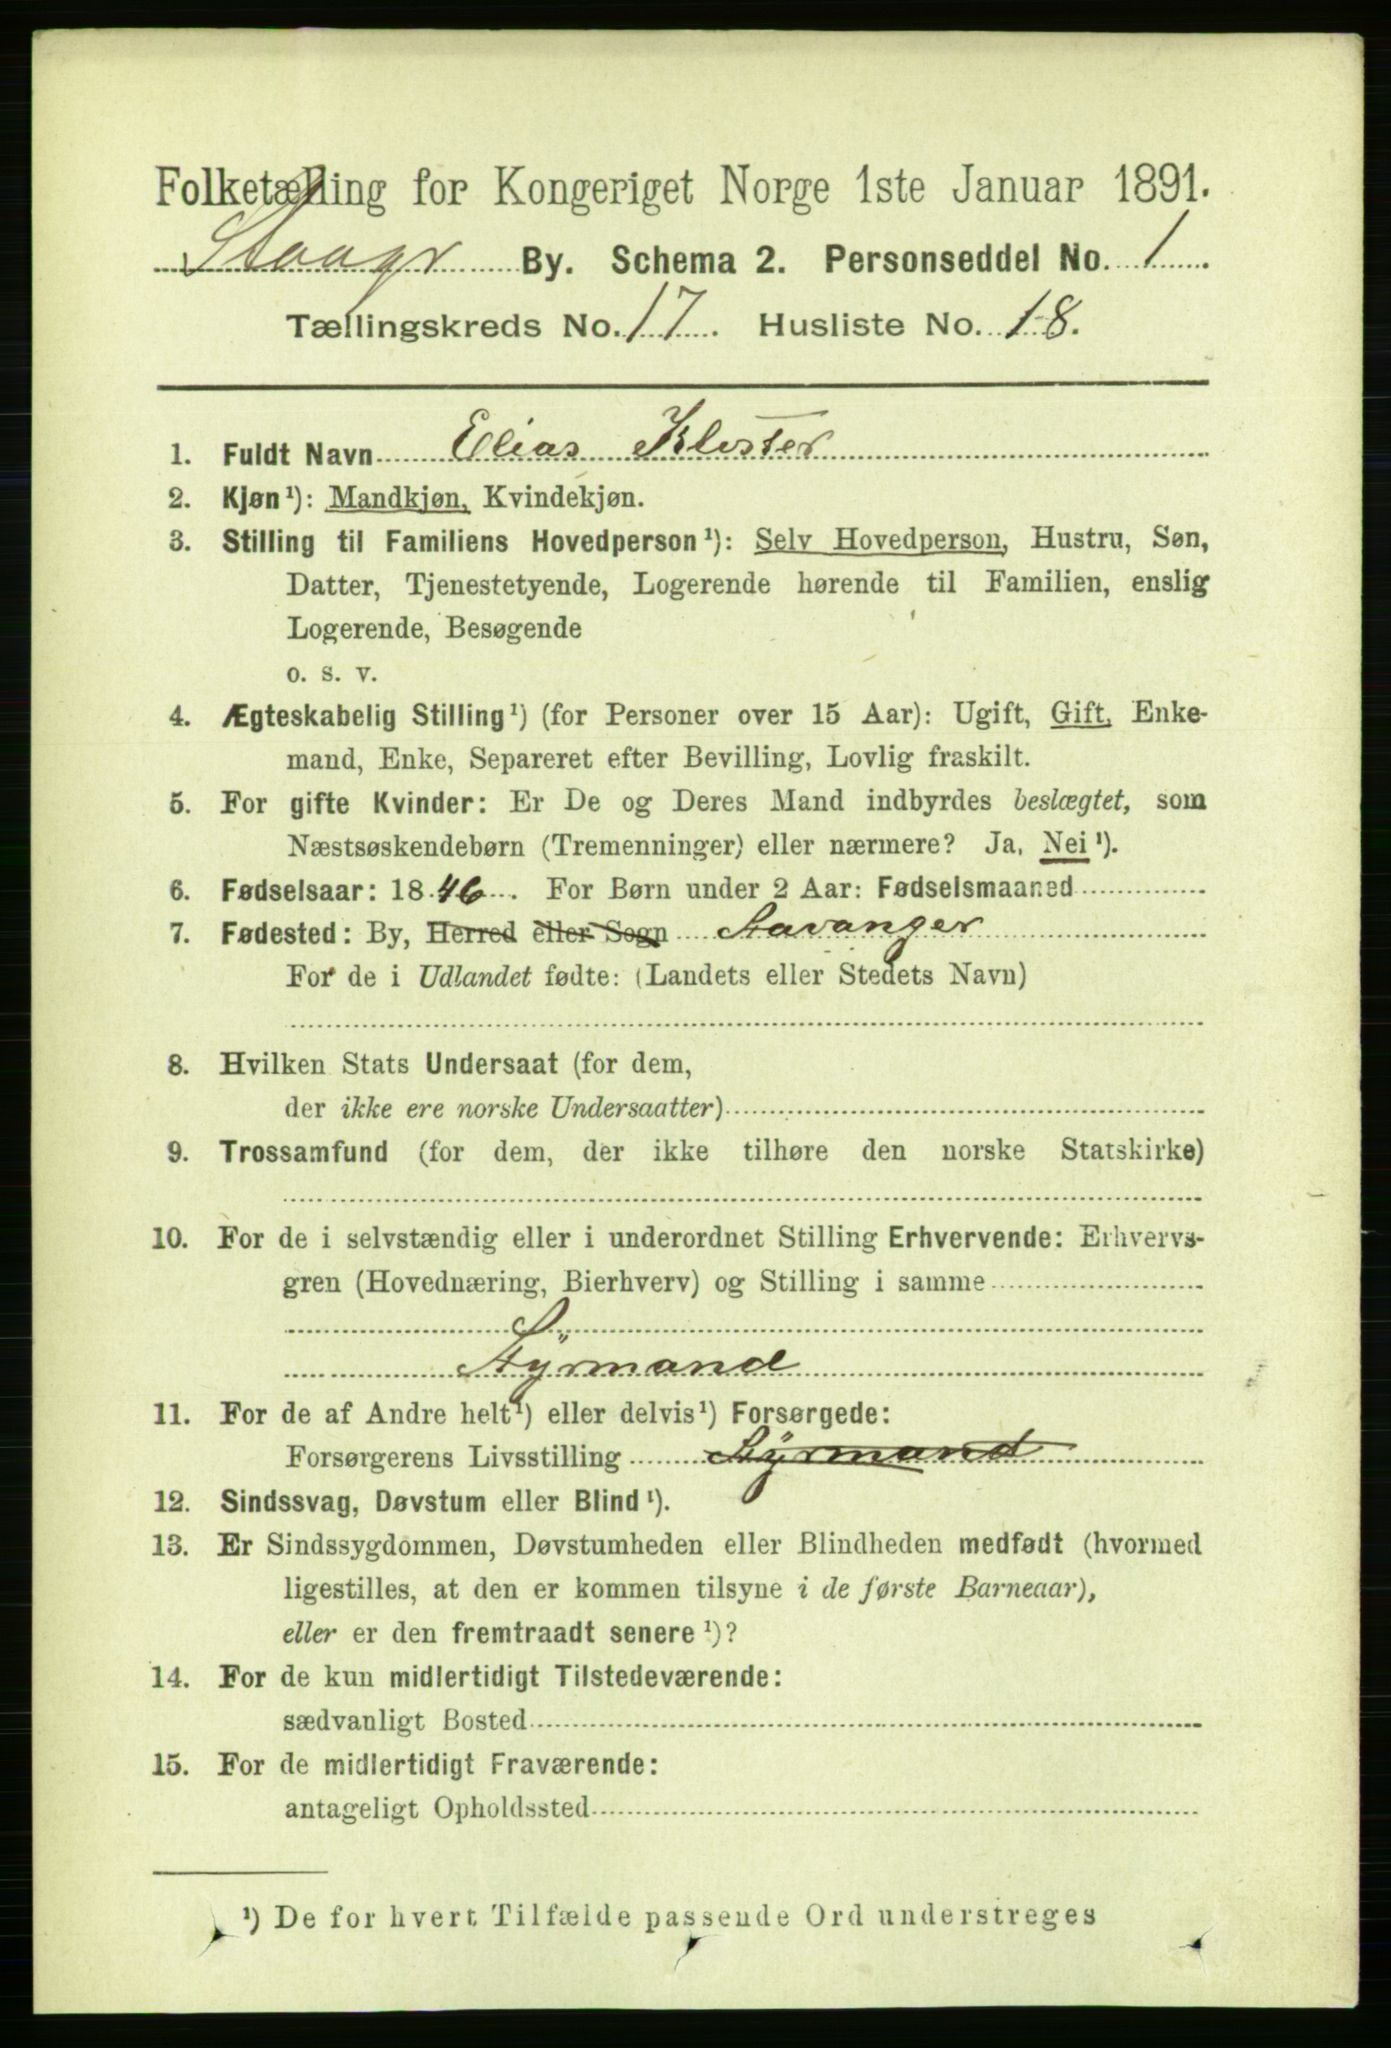 Folketælling for Kongeriget Norge 1ste Januar 1891.
By. Schema 2. Personseddel No. 1
Tællingskreds No. 17. Husliste No. 18.
1. Fuldt Navn Elias Kloster
2. Kjøn¹): Mandkjøn, Kvindekjøn.
3. Stilling til Familiens Hovedperson¹): Selv Hovedperson, Hustru, Søn,
Datter, Tjenestetyende, Logerende hørende til Familien, enslig
Logerende, Besøgende
o. s. v.
4. Ægteskabelig Stilling¹) (for Personer over 15 Aar): Ugift, Gift, Enke-
mand, Enke, Separeret efter Bevilling, Lovlig fraskilt.
5. For gifte Kvinder: Er De og Deres Mand indbyrdes beslægtet, som
Næstsøskendebørn (Tremenninger) eller nærmere? Ja, Nei¹).
6. Fødselsaar: 1846. For Børn under 2 Aar: Fødselsmaaned
7. Fødested: By, Herred eller Sogn Stavanger
For de i Udlandet fødte: (Landets eller Stedets Navn)
8. Hvilken Stats Undersaat (for dem,
der ikke ere norske Undersaatter)
9. Trossamfund (for dem, der ikke tilhøre den norske Statskirke)
10. For de i selvstændig eller i underordnet Stilling Erhvervende: Erhvervs-
gren (Hovednæring, Bierhverv) og Stilling i samme
Styrmand
11. For de af Andre helt¹) eller delvis¹) Forsørgede:
Forsørgerens Livsstilling Styrmand
12. Sindssvag, Døvstum eller Blind¹).
13. Er Sindssygdommen, Døvstumheden eller Blindheden medfødt (hvormed
ligestilles, at den er kommen tilsyne i de første Barneaar),
eller er den fremtraadt senere¹)?
14. For de kun midlertidigt Tilstedeværende:
sædvanligt Bosted
15. For de midlertidigt Fraværende:
antageligt Opholdssted
¹) De for hvert Tilfælde passende Ord understreges